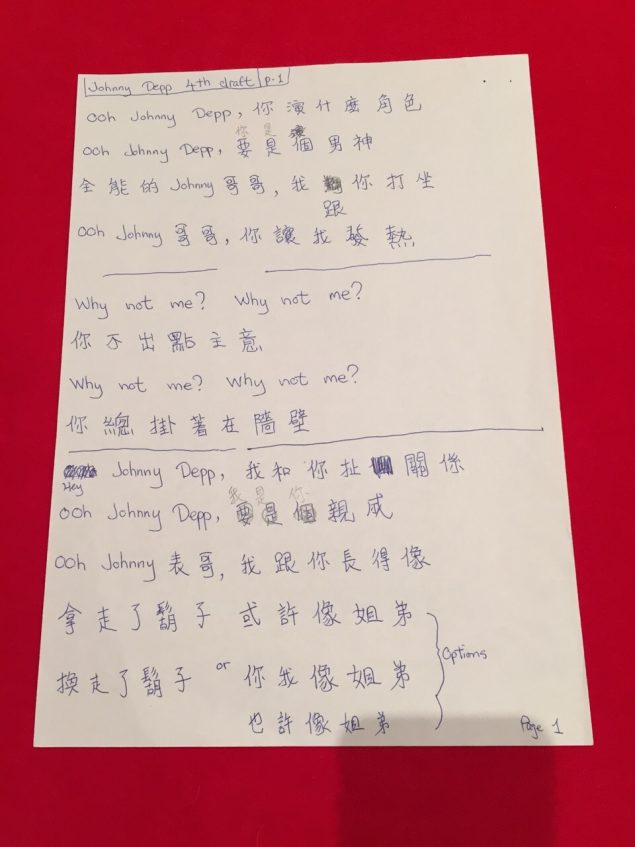 Johnny Depp 4th draft p.1
Ooh Johnny Depp, 你演什麼角色
你是
Ooh Johnny Depp, 要是個男神
全能的Johnny哥哥, 我 你打坐
跟
Ooh Johnny哥哥, 你讓我發熱
Why not me? Why not me?
你不出點主意
Why not me? Why not me?
你總掛著在牆壁
Johnny Depp, 我和你扯 關係
Hey
我是你
Ooh Johnny Depp, 要是個親戚
Ooh Johnny表哥, 我跟你長得像
拿走了鬍子 或許像姐弟
換走了鬍子 or 你我像姐弟
Options
也許像姐弟
Page 1